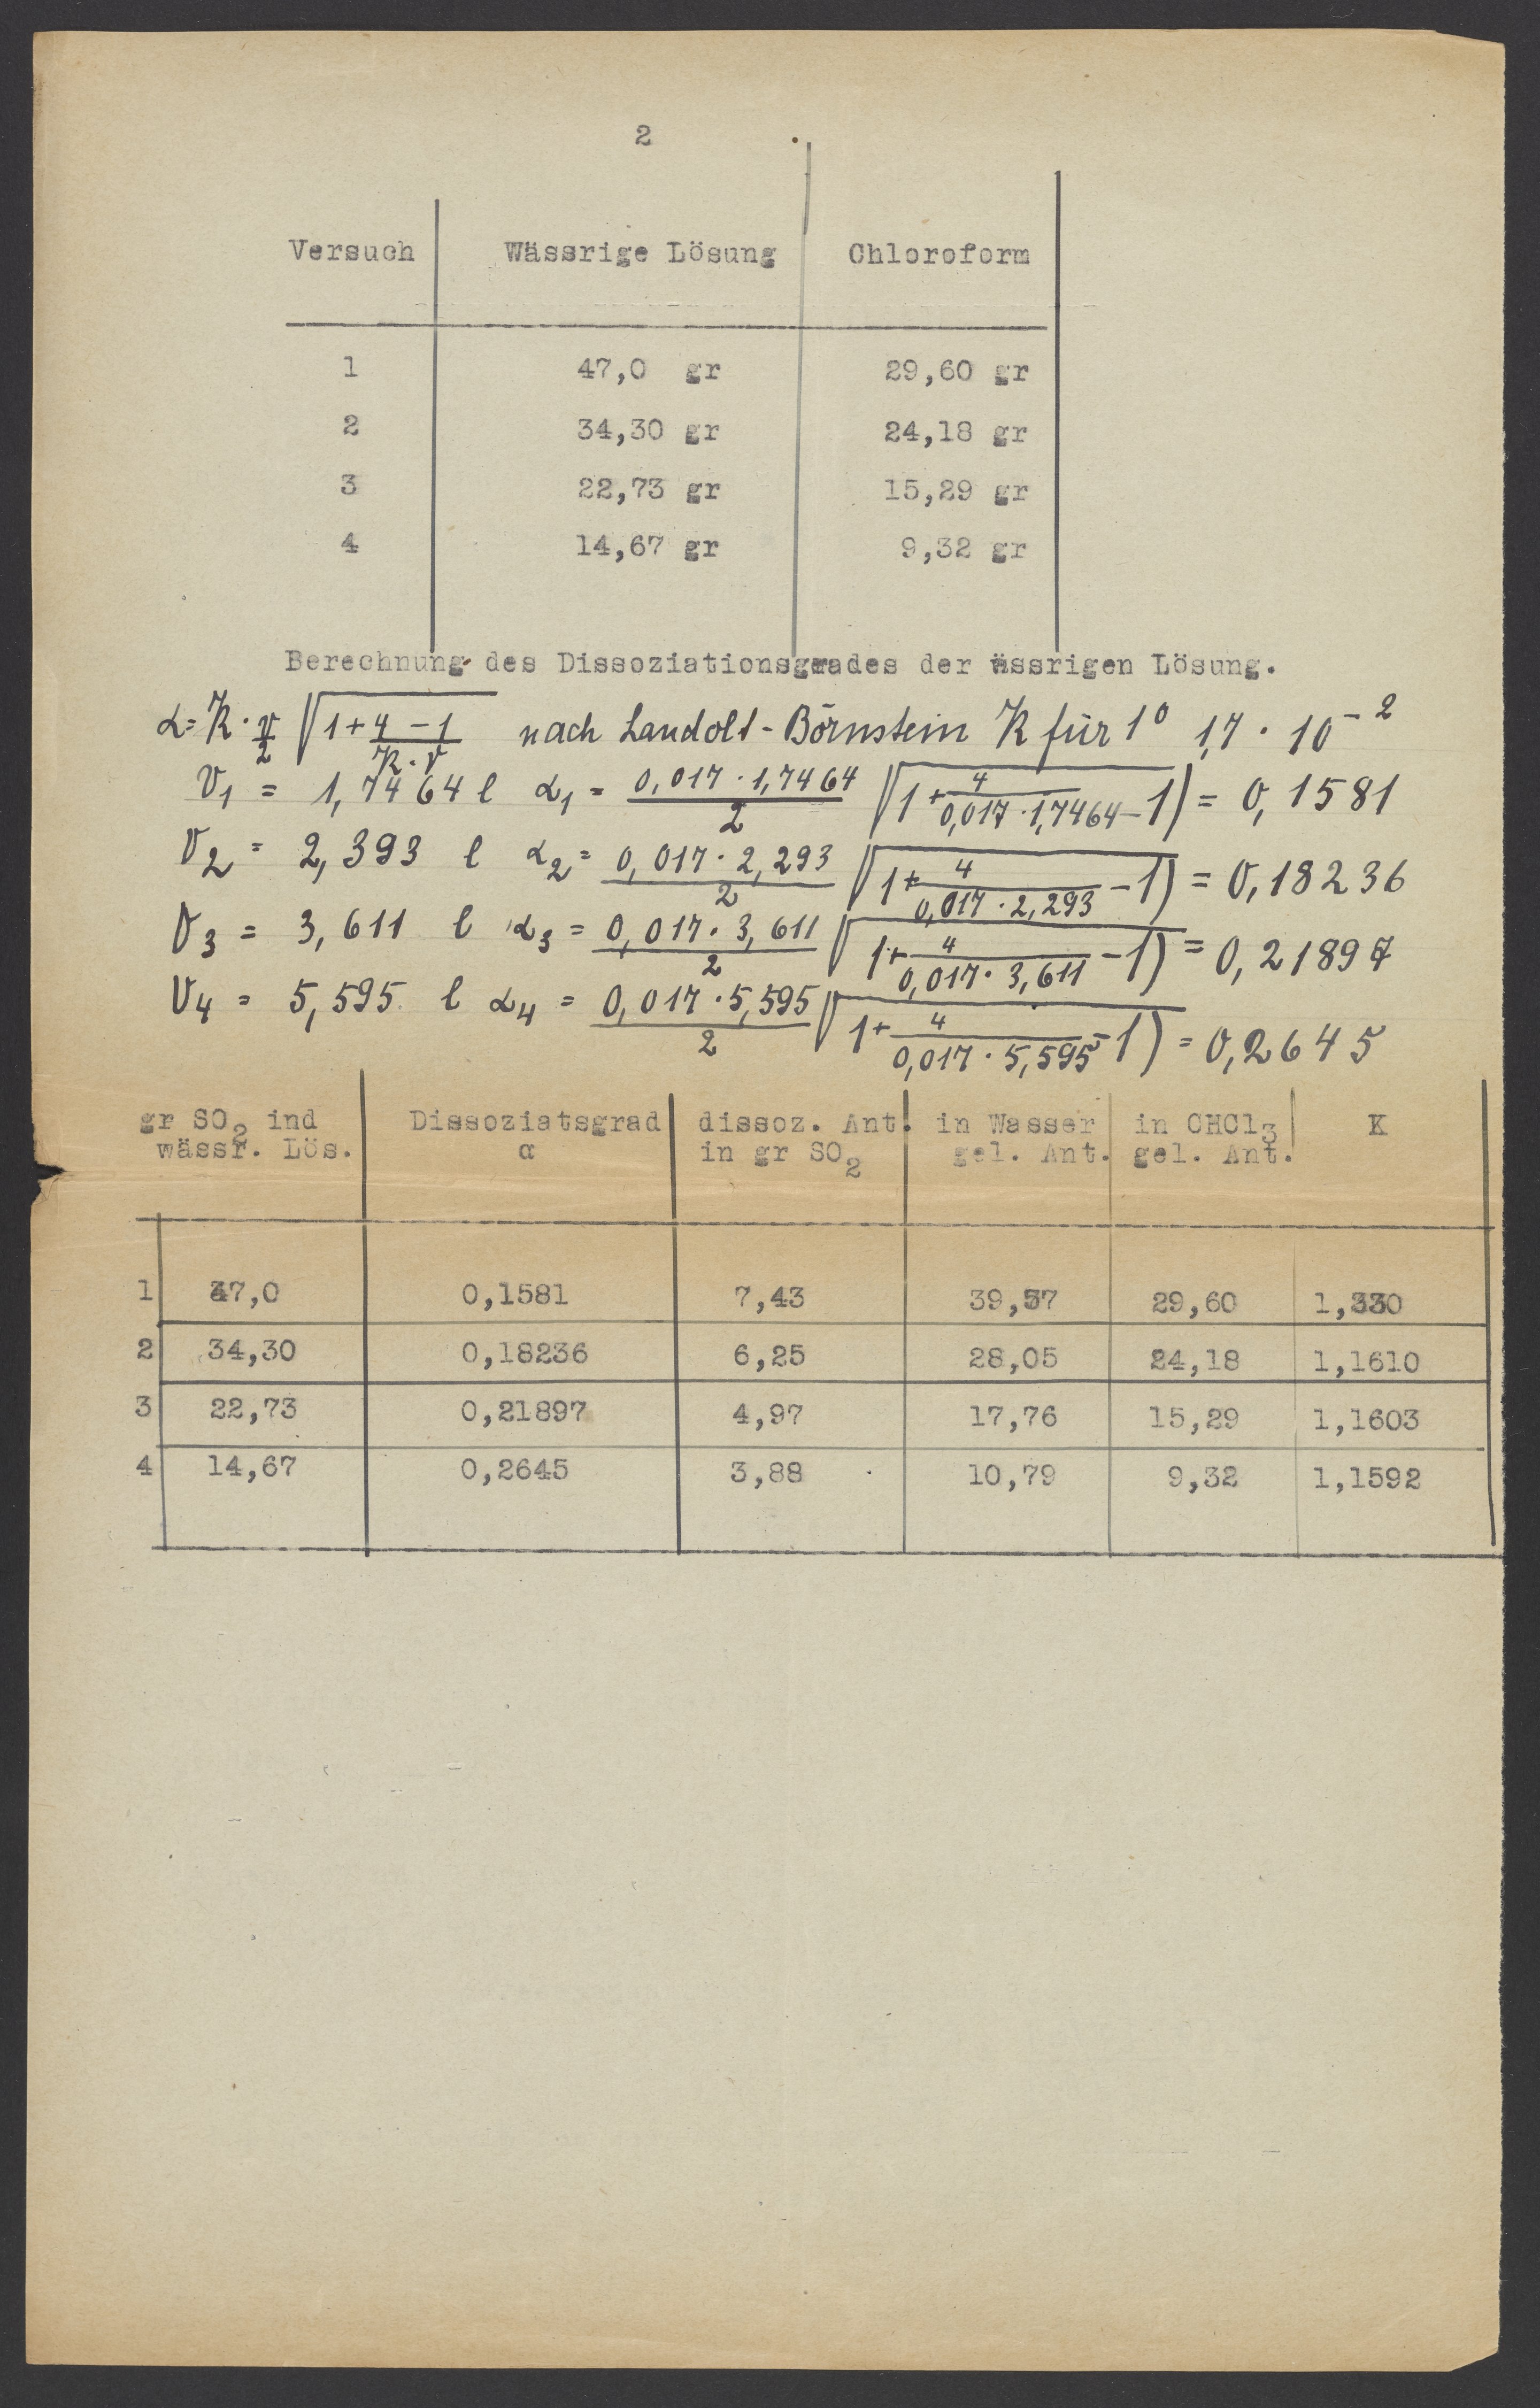 2
Versuch Wässrige Lösung Chloroform
1 47,0 gr 29,60 gr
2 34,30 gr 24,18 gr
3 22,73 gr 15,29 gr
4 14,67 gr 9,32 gr
Berechnung des Dissoziationsgrades der ässrigen Lösung.
α = K · v/2 √(1+4 − 1 / K·v) nach Landolt-Börnstein K für 1° 1,7 · 10⁻²
V₁ = 1,7464 l α₁ = 0,017 · 1,7464 / 2 √(1 + 4 / 0,017 · 1,7464 − 1) = 0,1581
V₂ = 2,393 l α₂ = 0,017 · 2,293 / 2 √(1 + 4 / 0,017 · 2,293 − 1) = 0,18236
V₃ = 3,611 l α₃ = 0,017 · 3,611 / 2 √(1 + 4 / 0,017 · 3,611 − 1) = 0,21897
V₄ = 5,595 l α₄ = 0,017 · 5,595 / 2 √(1 + 4 / 0,017 · 5,595 − 1) = 0,2645
gr SO₂ ind Dissoziatsgrad dissoz. Ant. in Wasser in CHCl₃ K
wässr. Lös. α in gr SO₂ gel. Ant. gel. Ant.
1 47,0 0,1581 7,43 39,57 29,60 1,330
2 34,30 0,18236 6,25 28,05 24,18 1,1610
3 22,73 0,21897 4,97 17,76 15,29 1,1603
4 14,67 0,2645 3,88 10,79 9,32 1,1592